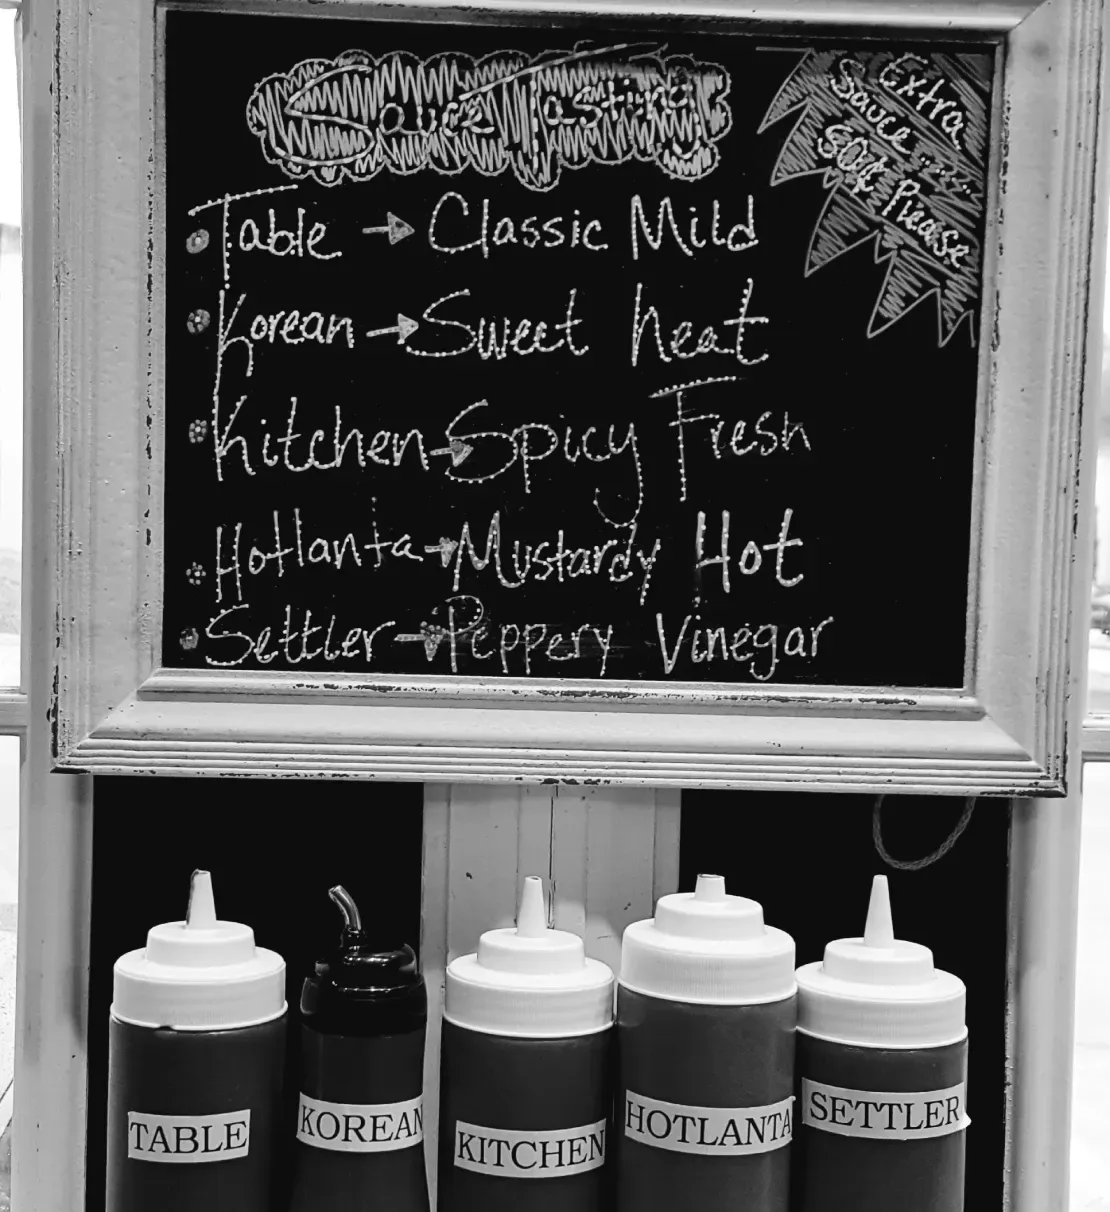 Sauce Tasting
Extra
Sauce ......
50¢ Please
Table → Classic Mild
Korean → Sweet heat
Kitchen → Spicy Fresh
Hotlanta → Mustardy Hot
Settler → Peppery Vinegar
TABLE
KOREAN
KITCHEN
HOTLANTA
SETTLER